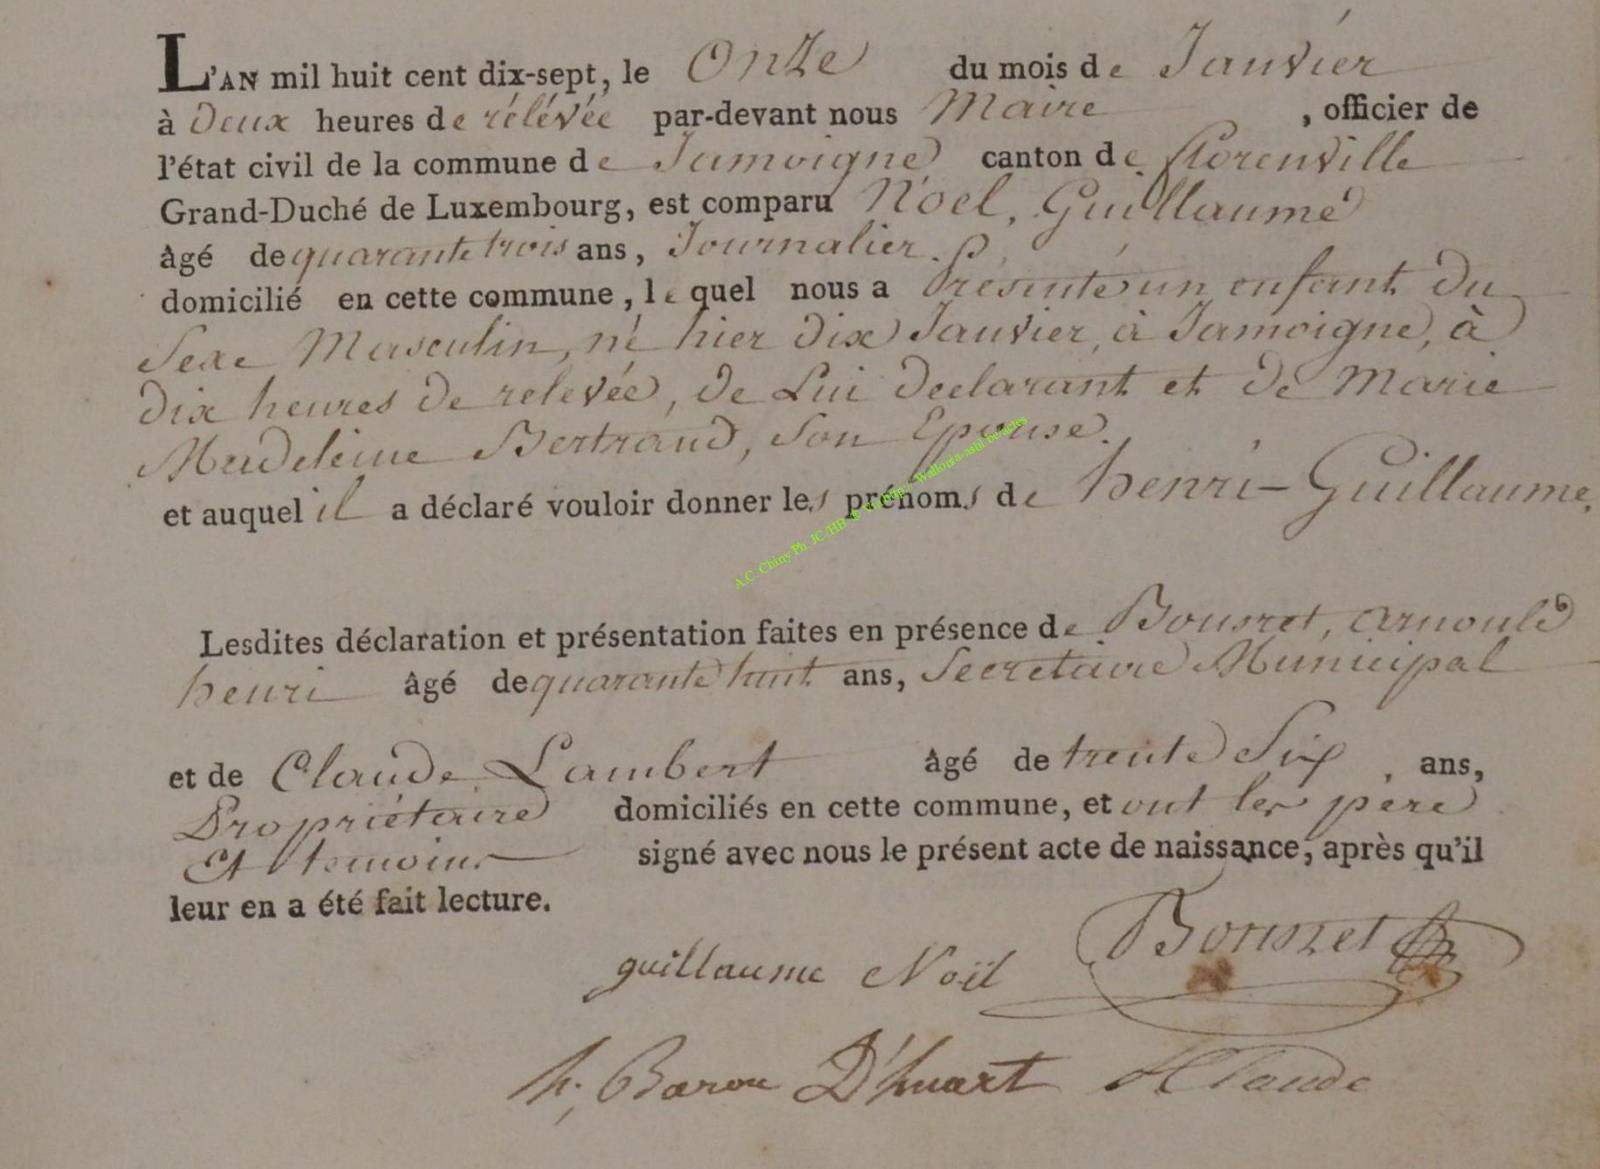 L'AN mil huit cent dix-sept, le Onze du mois de Janvier
à deux heures de rélévée par-devant nous Maire , officier de
l'état civil de la commune de Jamoigne canton de florenville
Grand-Duché de Luxembourg, est comparu Noël, Guillaume
âgé de quarante trois ans, Journalier.
domicilié en cette commune, lequel nous a Présenté un enfant du
Sexe Masculin, né hier dix Janvier, à Jamoigne, à
dix heures de relevée, de Lui declarant et de Marie
Madeleine Bertrand, son Epouse.
et auquel il a déclaré vouloir donner les prénoms de henri-Guillaume.
Lesdites déclaration et présentation faites en présence de Bousret, arnould
henri âgé de quarante huit ans, Secretaire Municipal
et de Claude, Lambert âgé de trente Six , ans,
Propriétaire domiciliés en cette commune, et ont les père
et temoins signé avec nous le présent acte de naissance, après qu'il
leur en a été fait lecture.
guillaume Noël Bousret
h. Baron D'huart Claude
A.C. Chiny Ph. JC.HB